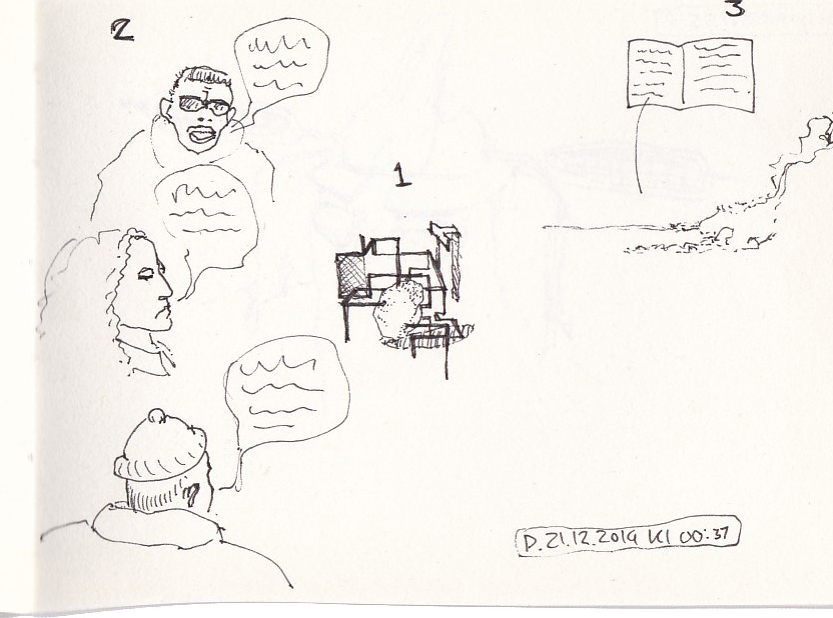 2
3
1
D.21.12.2019 Kl 00:37